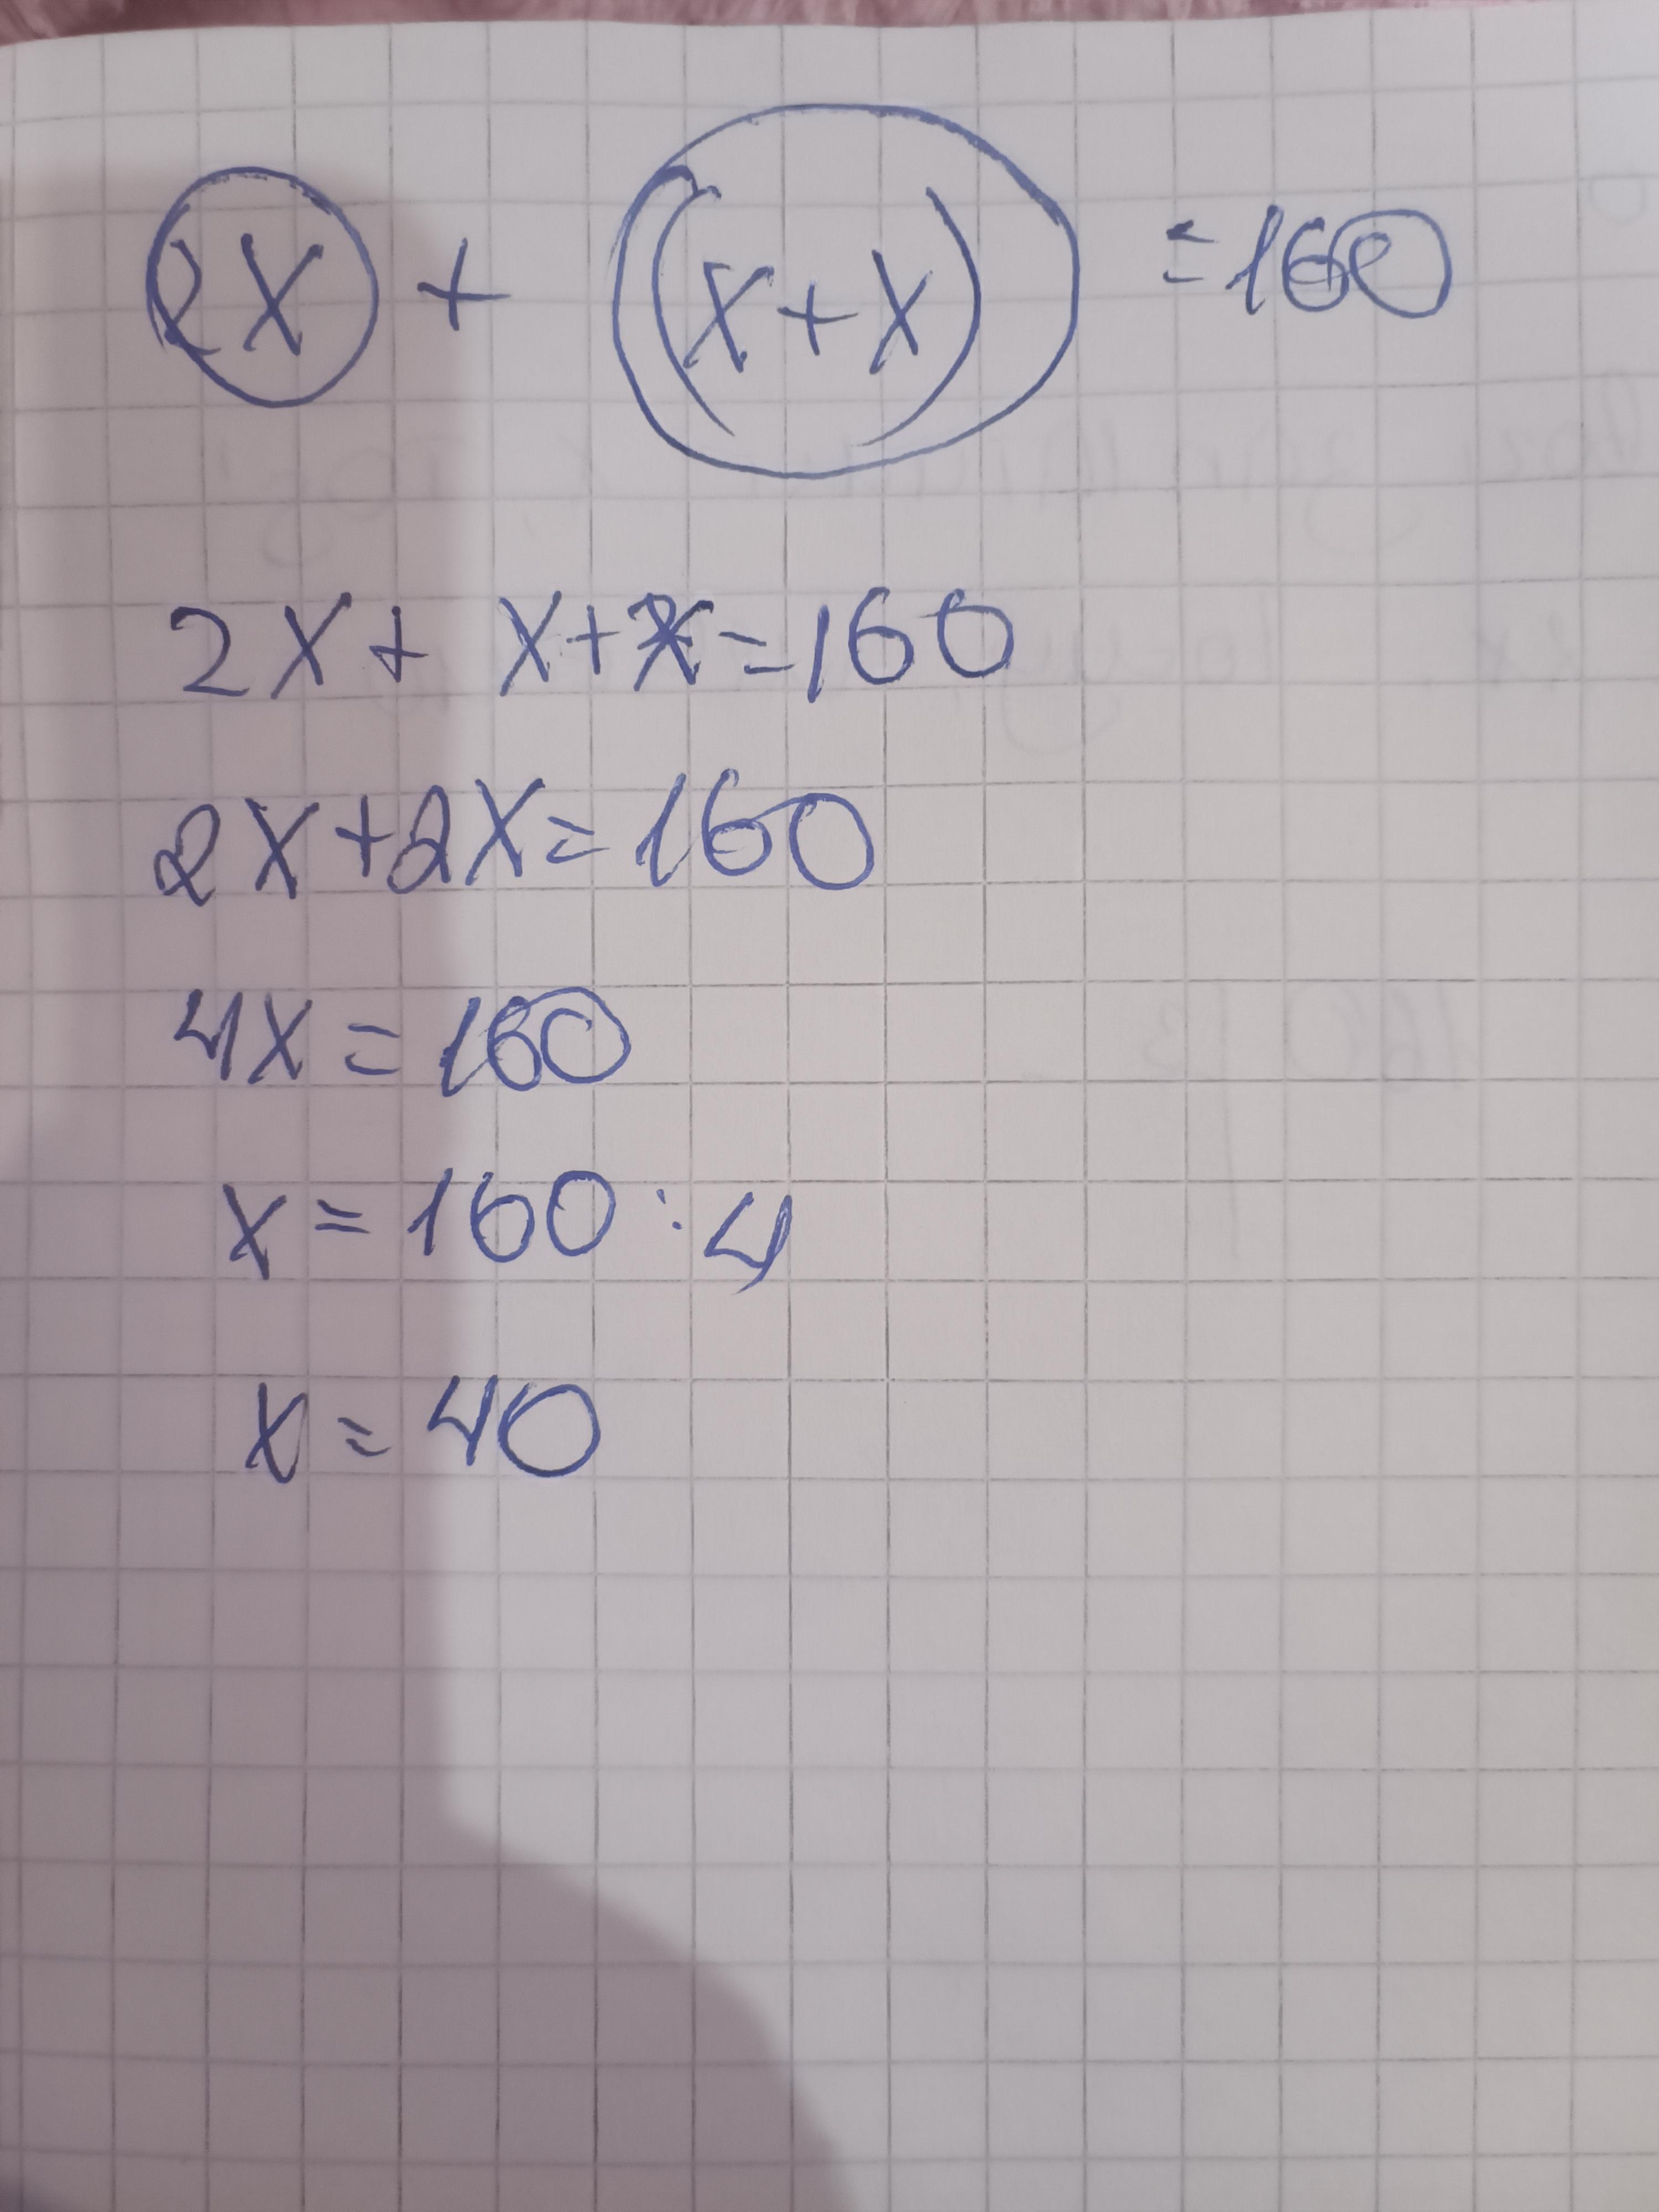 2x + (x+x) = 160
2x + x+x=160
2x+2x=160
4x=160
x=160:4
x=40